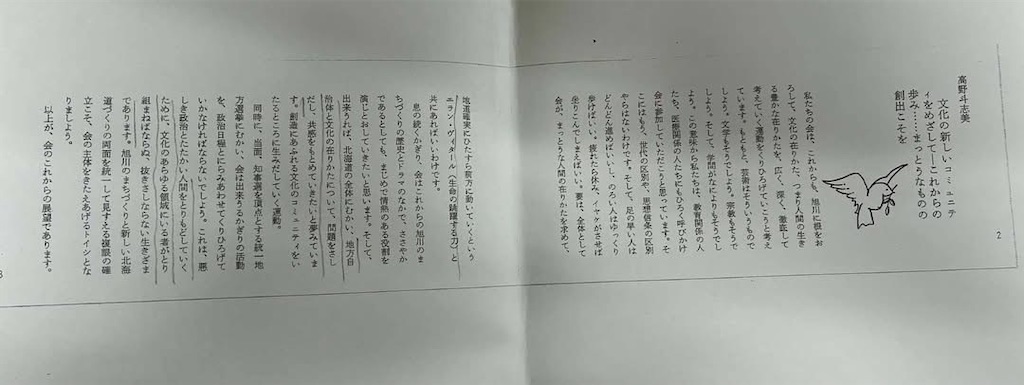 2
高野斗志美
文化の新しいコミュニテ
ィをめざして―これからの
歩み……まっとうなものの
創出こそを
私たちの会は、これからも、旭川に根をお
ろして、文化の在りかた、つまり人間の生き
る豊かな在りかたを、広く、深く、徹底して
考えていく運動をくりひろげていこうと考え
ています。もともと、芸術はそういうもので
しょう。文学もそうでしょう。宗教もそうで
しょう。そして、学問がなによりもそうでし
ょう。この意味から私たちは、教育関係の人
たち、医療関係の人たちにもひろく呼びかけ
会に参加していただこうと思っています。そ
こにはもう、世代の区別や、思想信条の区別
やらはないわけです。そして、足の早い人は
どんどん進めばいいし、のろい人はゆっくり
歩けばいい。疲れたら休み、イヤケがさせば
坐りこんでしまえばいい。要は、全体として
会が、まっとうな人間の在りかたを求めて、
地道確実にひたすら前方に動いていくという
エラン・ヴィタール（生命の躍躍する力）と
共にあればいいわけです。
息の続くかぎり、会はこれからの旭川のま
ちづくりの歴史とドラマのなかで、ささやか
であるとしても、まじめで情熱のある役割を
演じとおしていきたいと思います。そして、
出来うれば、北海道の全体にむかい、地方自
治体と文化の在りかたについて、問題をさし
だし、共感をもとめていきたいと夢みていま
す。創造にあふれる文化のコミュニティをい
たるところに生みだしていく運動。
同時に、当面、知事選を頂点とする統一地
方選挙にむかい、会は出来うるかぎりの活動
を、政治日程とにらみあわせてくりひろげて
いかなければならないでしょう。これは、悪
しき政治とたたかい人間をとりもどしていく
ために、文化のあらゆる領域にいる者がとり
組まねばならぬ、抜きさしならない生きざま
であります。旭川のまちづくりと新しい北海
道づくりの両面を統一して見すえる複眼の確
立こそ、会の主体をきたえあげるトイシとな
りましょう。
以上が、会のこれからの展望であります。
3